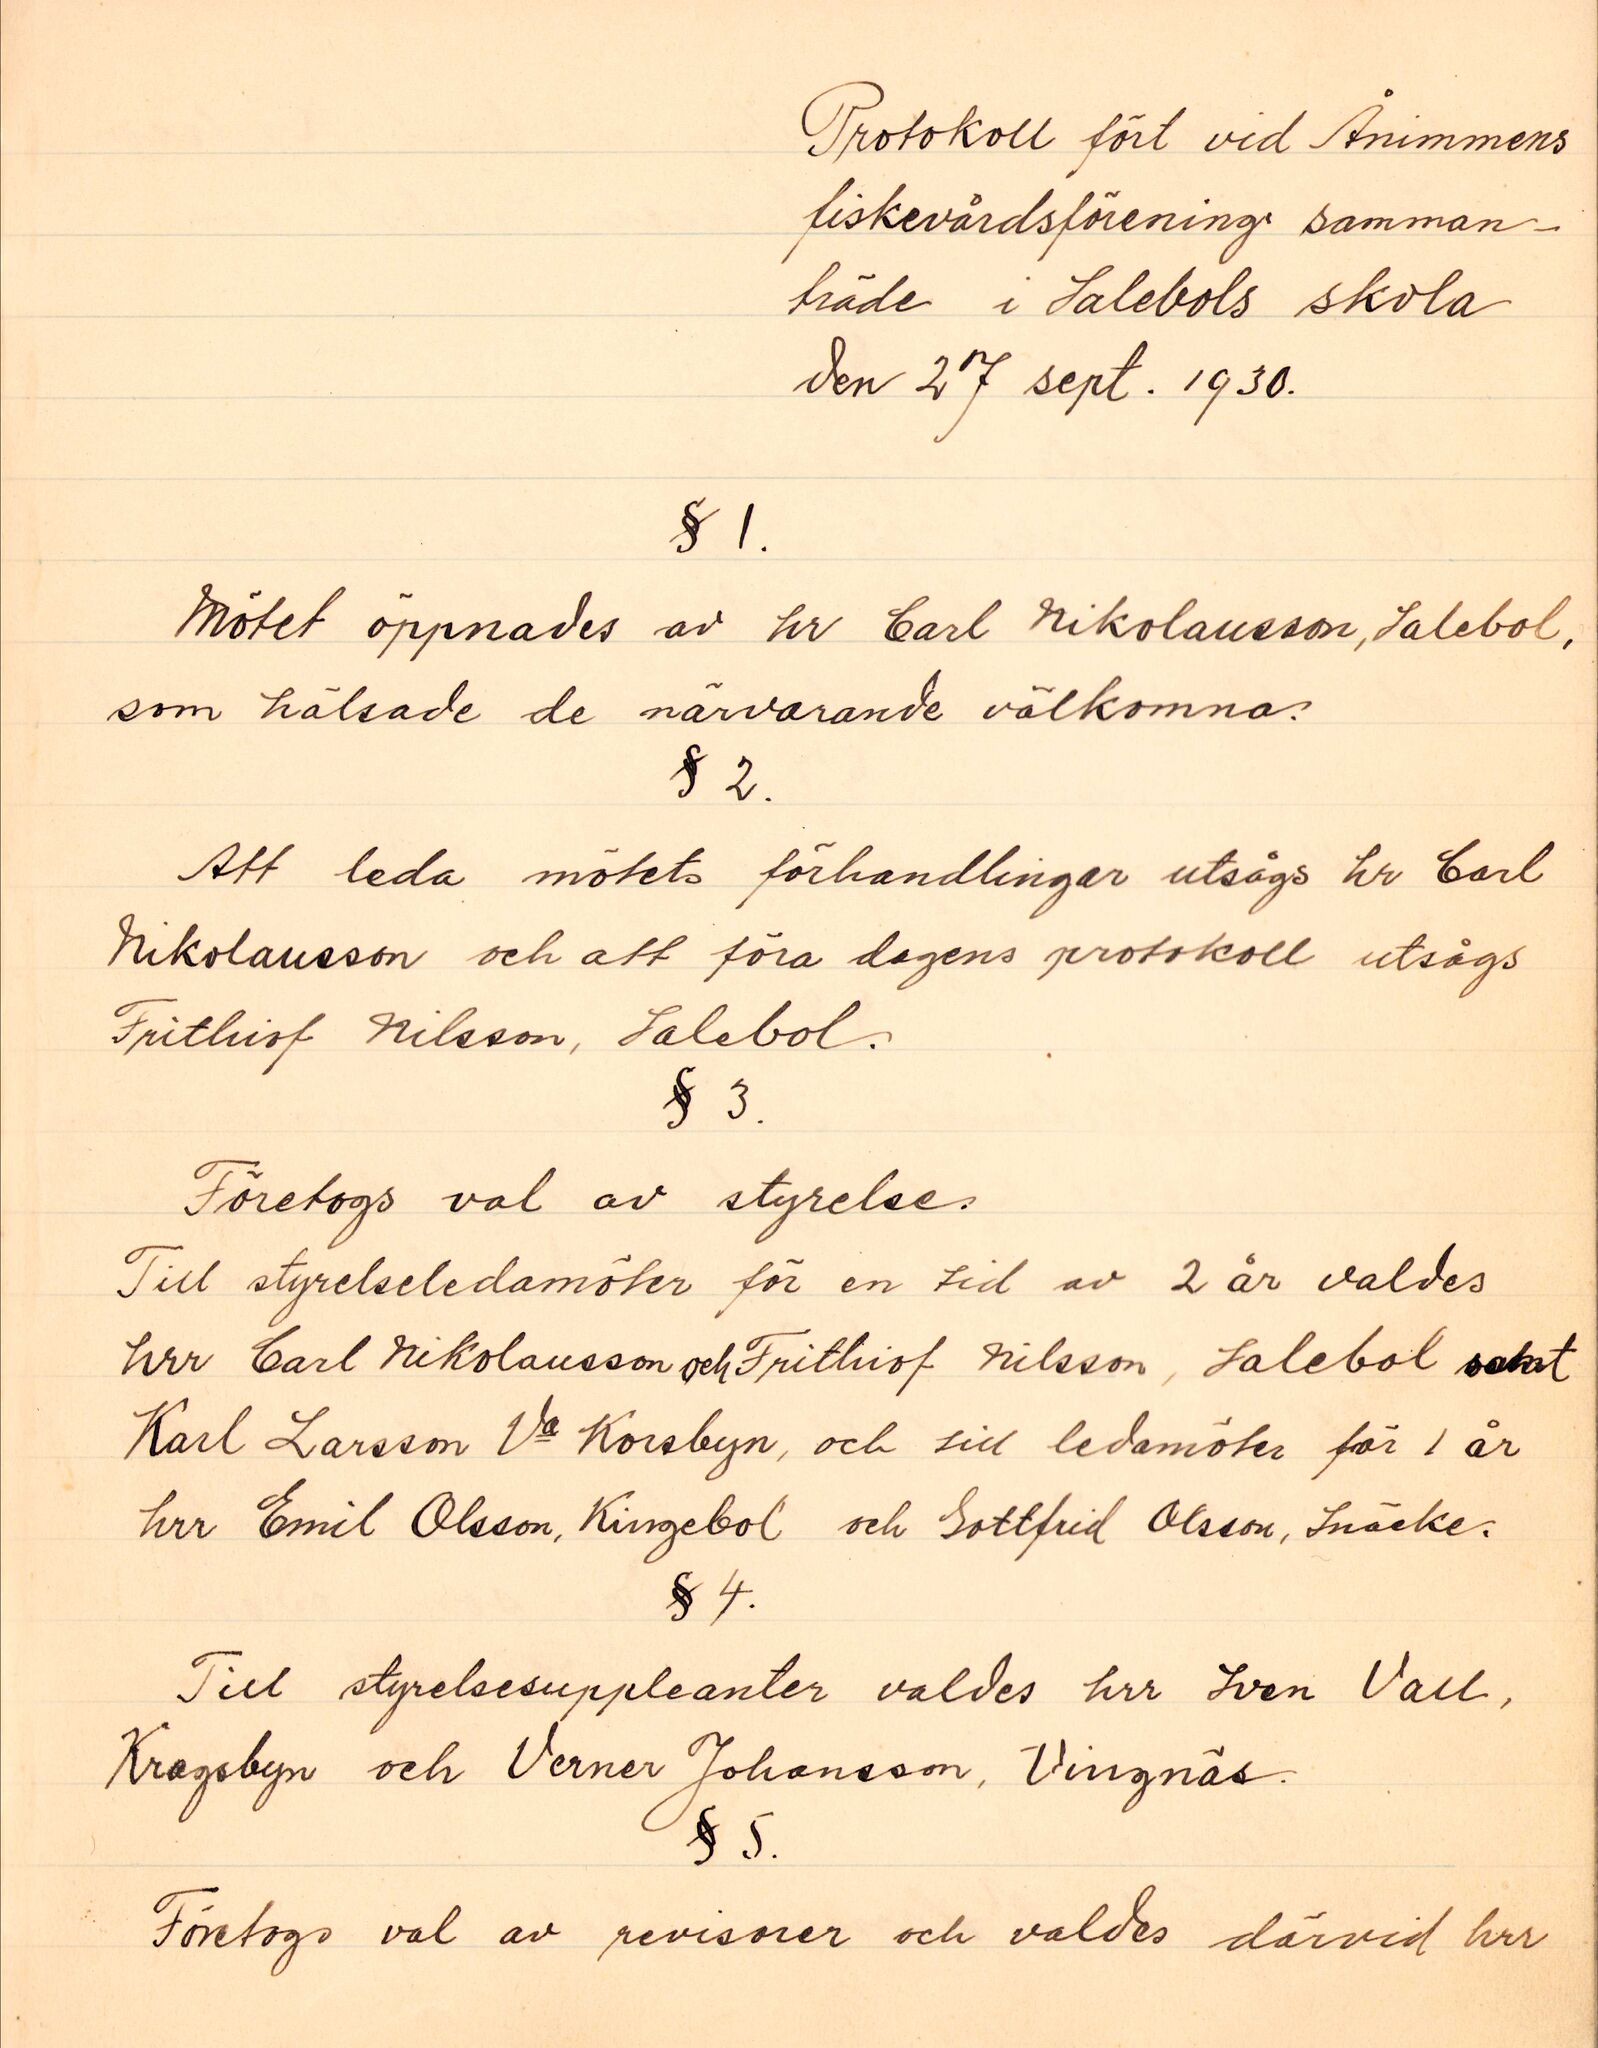 Protokoll fört vid Ånimmens
fiskevårdsförenings samman-
träde i Salebols skola
den 27 sept. 1930.
§ 1.
Mötet öppnades av hr Carl Nikolausson, Salebol,
som hälsade de närvarande välkomna.
§ 2.
Att leda mötets förhandlingar utsågs hr Carl
Nikolausson och att föra dagens protokoll utsågs
Frithiof Nilsson, Salebol.
§ 3.
Företogs val av styrelse.
Till styrelseledamöter för en tid av 2 år valdes
hrr Carl Nikolausson och Frithiof Nilsson, Salebol samt
Karl Larsson Va Korsbyn, och till ledamöter för 1 år
hrr Emil Olsson, Kingebol och Gottfrid Olsson, Snäcke.
§ 4.
Till styrelsesuppleanter valdes hrr Sven Vall,
Kragsbyn och Verner Johansson, Vingnäs.
§ 5.
Företogs val av revisorer och valdes därvid hrr